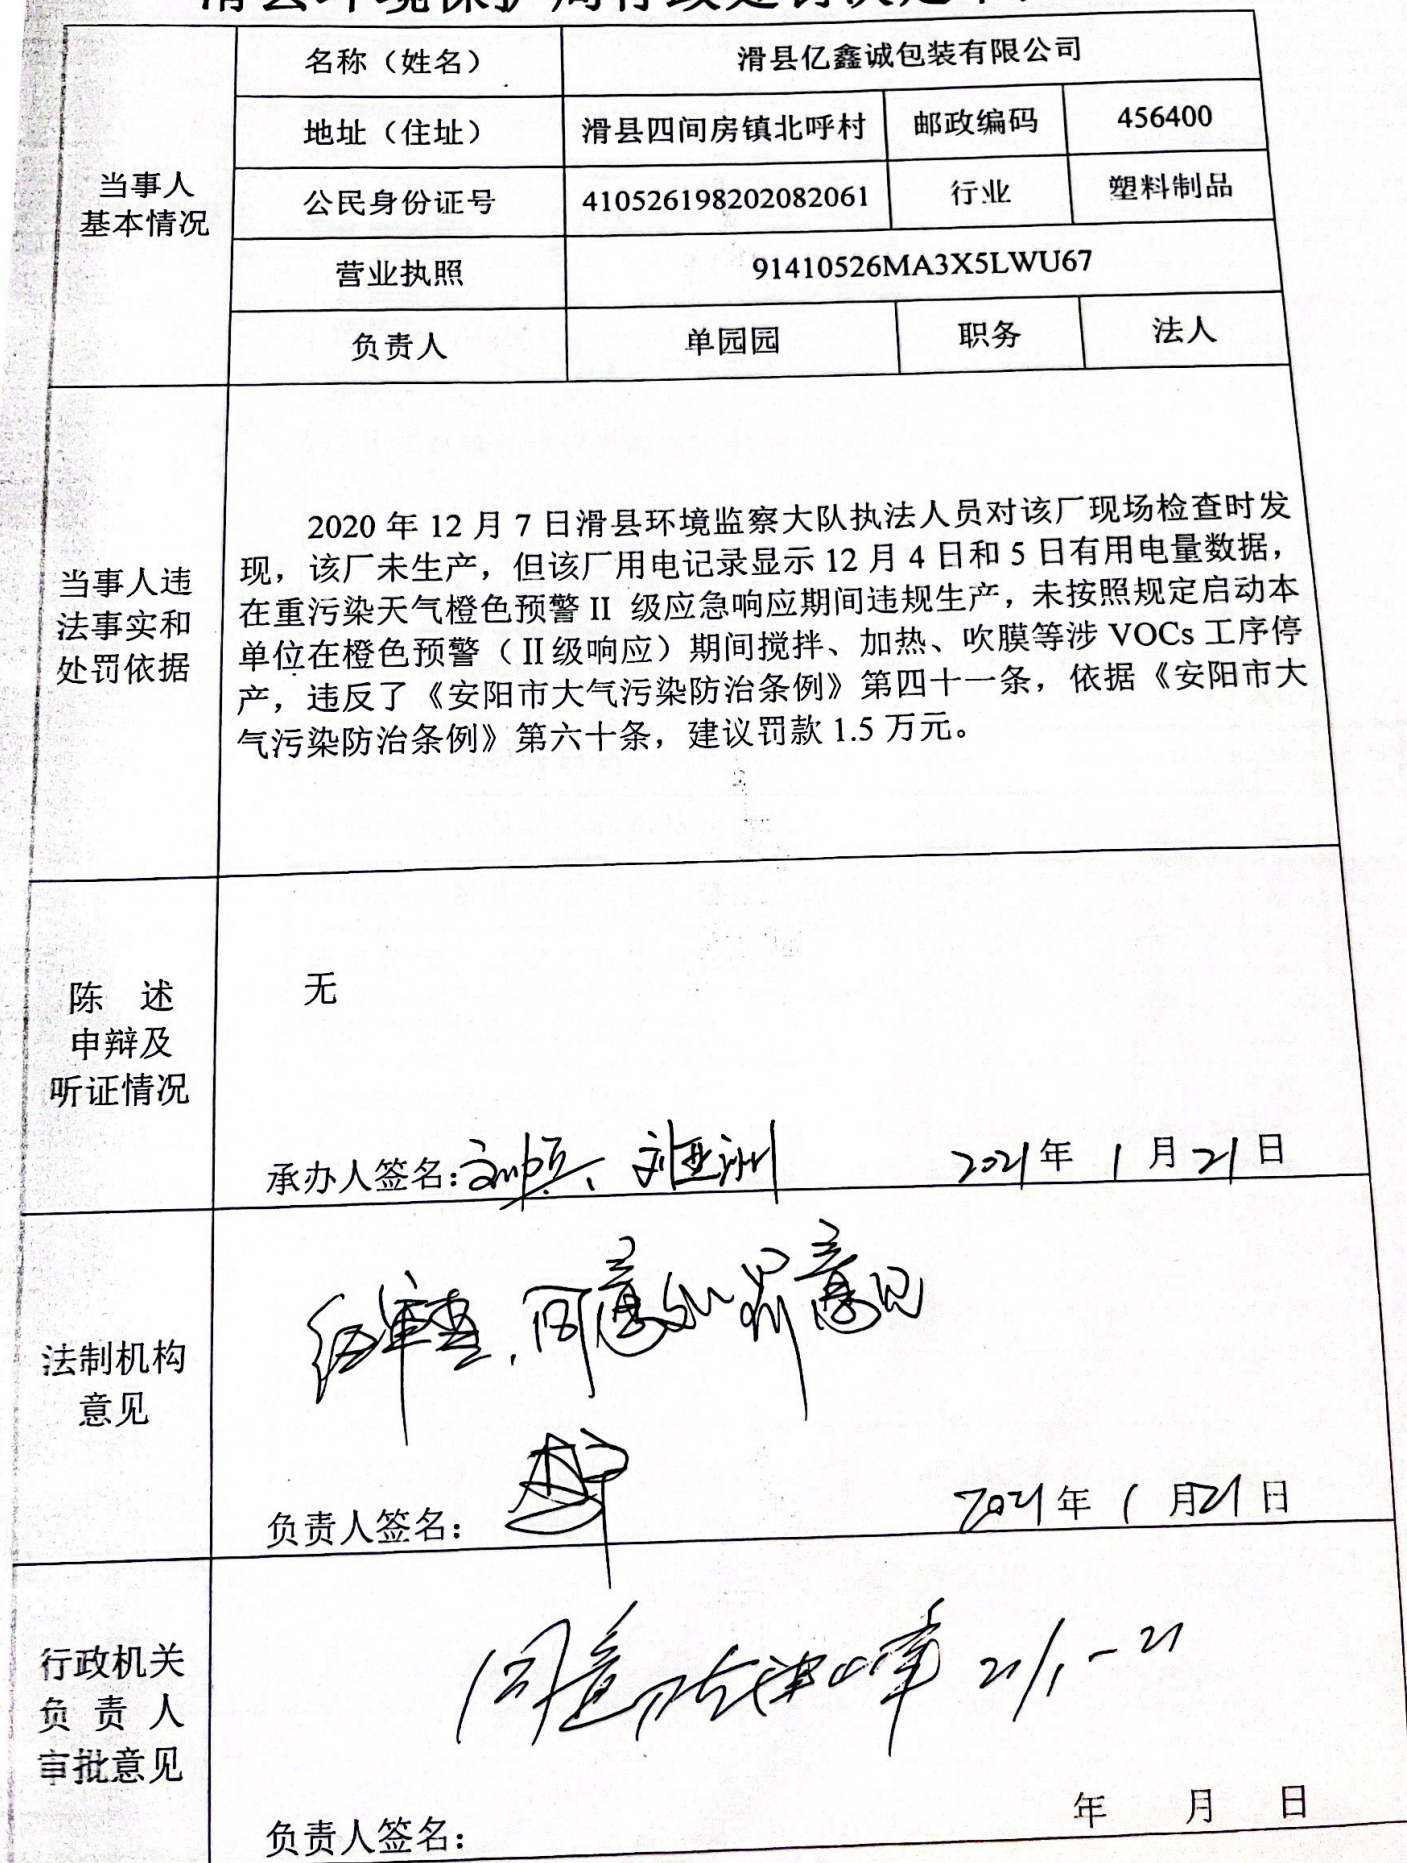 滑县环境保护局行政处罚决定审
当事人
基本情况
名称（姓名） 滑县亿鑫诚包装有限公司
地址（住址） 滑县四间房镇北呼村 邮政编码 456400
公民身份证号 410526198202082061 行业 塑料制品
营业执照 91410526MA3X5LWU67
负责人 单园园 职务 法人
当事人违
法事实和
处罚依据
2020 年 12 月 7 日滑县环境监察大队执法人员对该厂现场检查时发
现，该厂未生产，但该厂用电记录显示 12 月 4 日和 5 日有用电量数据，
在重污染天气橙色预警 II 级应急响应期间违规生产，未按照规定启动本
单位在橙色预警（II级响应）期间搅拌、加热、吹膜等涉 VOCs 工序停
产，违反了《安阳市大气污染防治条例》第四十一条，依据《安阳市大
气污染防治条例》第六十条，建议罚款 1.5 万元。
陈 述
申辩及
听证情况
无
承办人签名： 刘亚洲 2021年 1 月 21 日
法制机构
意见
经审查，同意处罚意见
负责人签名： 2021年 1 月 21 日
行政机关
负 责 人
审批意见
同意 21/1-21
负责人签名： 年 月 日